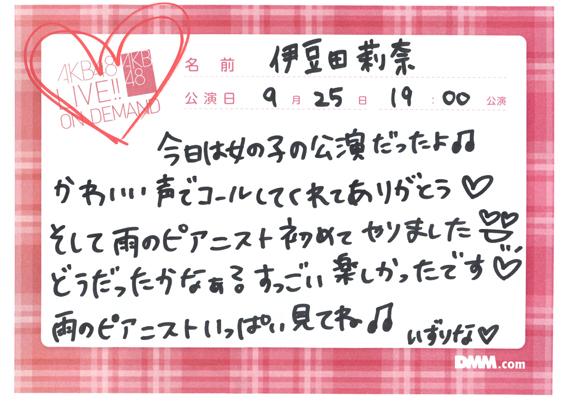 AKB48
LIVE!!
ON DEMAND
AKB
48
名前 伊豆田莉奈
公演日 9月25日 19:00公演
今日は女の子の公演だったよ♫
かわいい声でコールしてくれてありがとう♡
そして雨のピアニスト初めてやりました
どうだったかなぁ?すっごい楽しかったです♡
雨のピアニストいっぱい見てね♫
いずりな♡
DMM.com